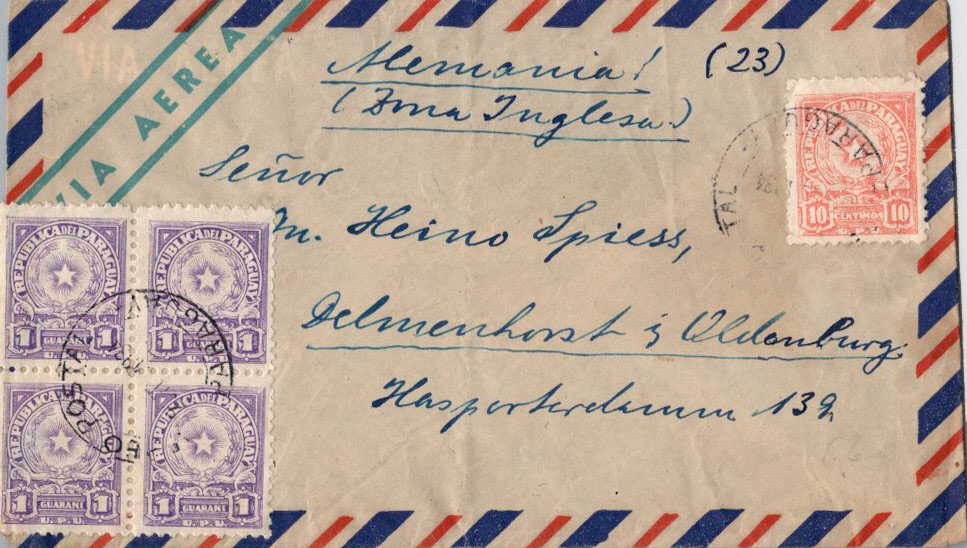 VIA AEREA
VIA AEREA
Alemania! (23)
(Zona Inglesa)
Señor
Heino Spiess,
Delmenhorst i/ Oldenburg.
Hasporterdamm 139
REPUBLICA DEL PARAGUAY
10 CENTIMOS 10
PARAGUAY
TAL
REPUBLICA DEL PARAGUAY
1 GUARANI 1
U.P.U.
REPUBLICA DEL PARAGUAY
1 GUARANI 1
U.P.U.
REPUBLICA DEL PARAGUAY
1 GUARANI 1
U.P.U.
REPUBLICA DEL PARAGUAY
1 GUARANI 1
U.P.U.
EO POSTAL
PARAGUAY